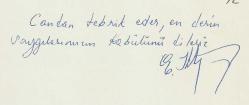 Candan tebrik eder, en derin
saygılarımın kabulünü dilerim